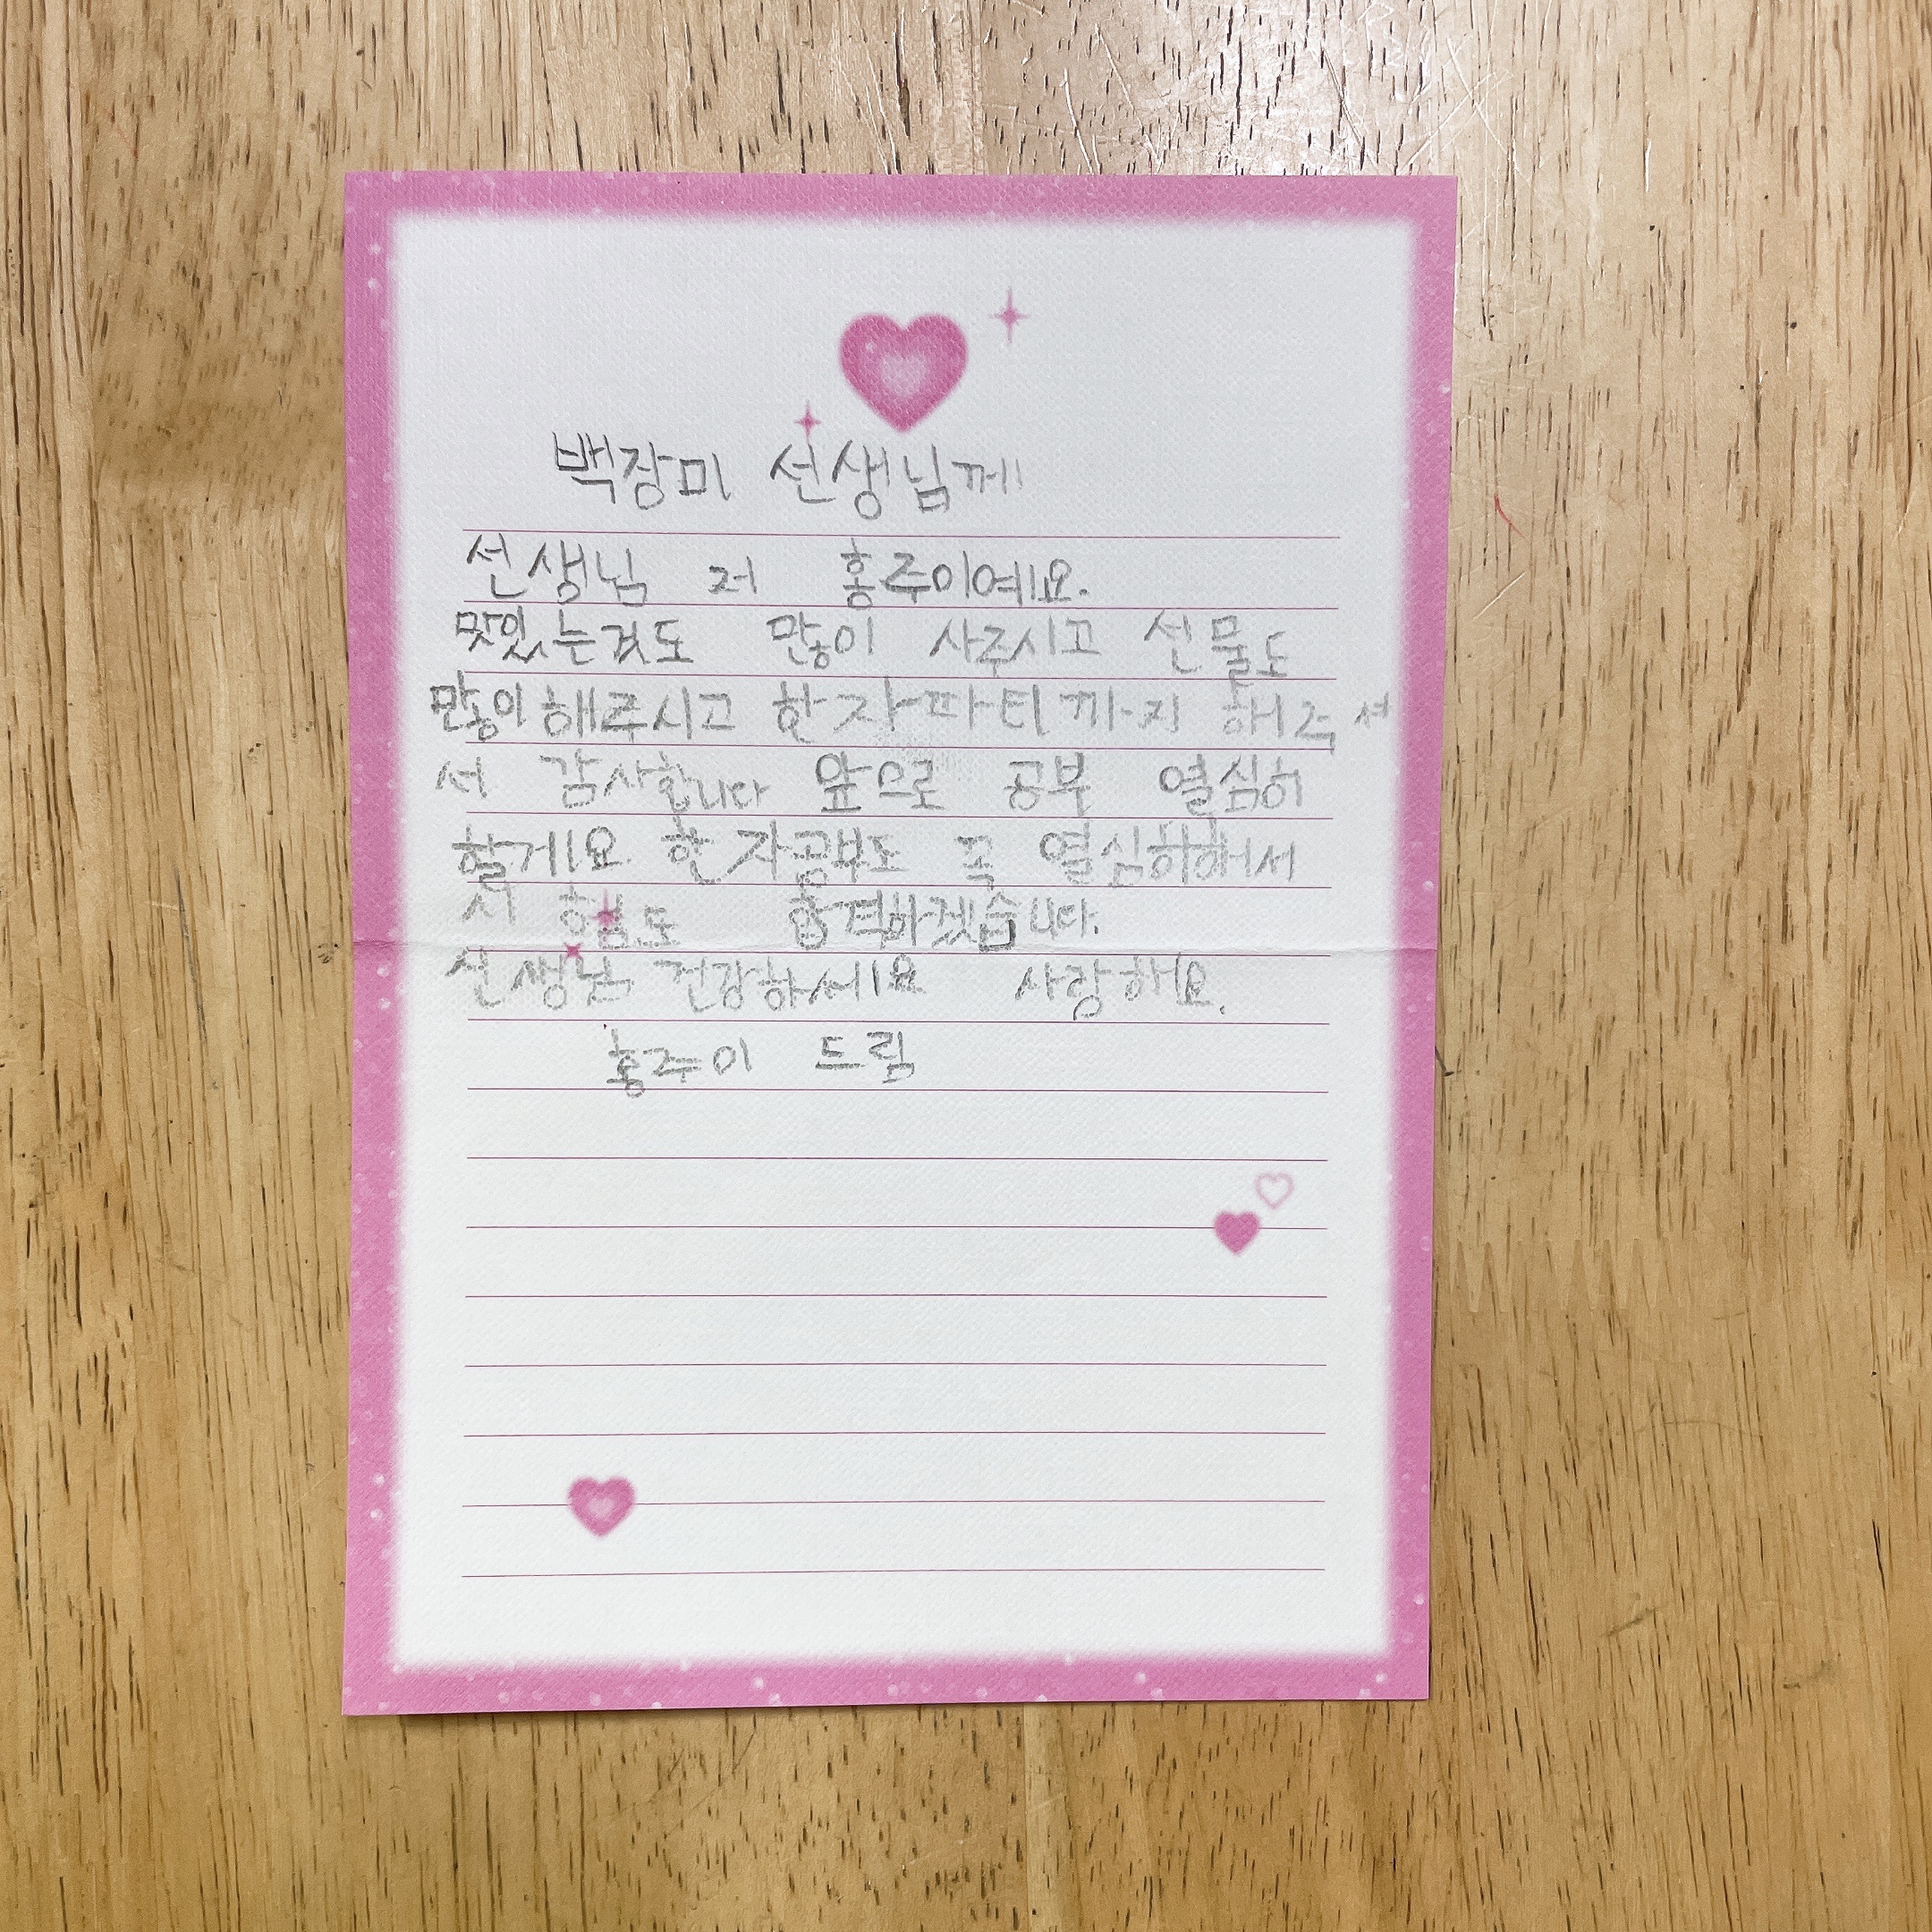 백장미 선생님께
선생님 저 홍주이예요.
맛있는것도 많이 사주시고 선물도
많이 해주시고 한자파티까지 해주셔
서 감사합니다 앞으로 공부 열심히
할게요 한자공부도 꼭 열심히해서
시험도 합격하겠습니다.
선생님 건강하세요 사랑해요.
홍주이 드림